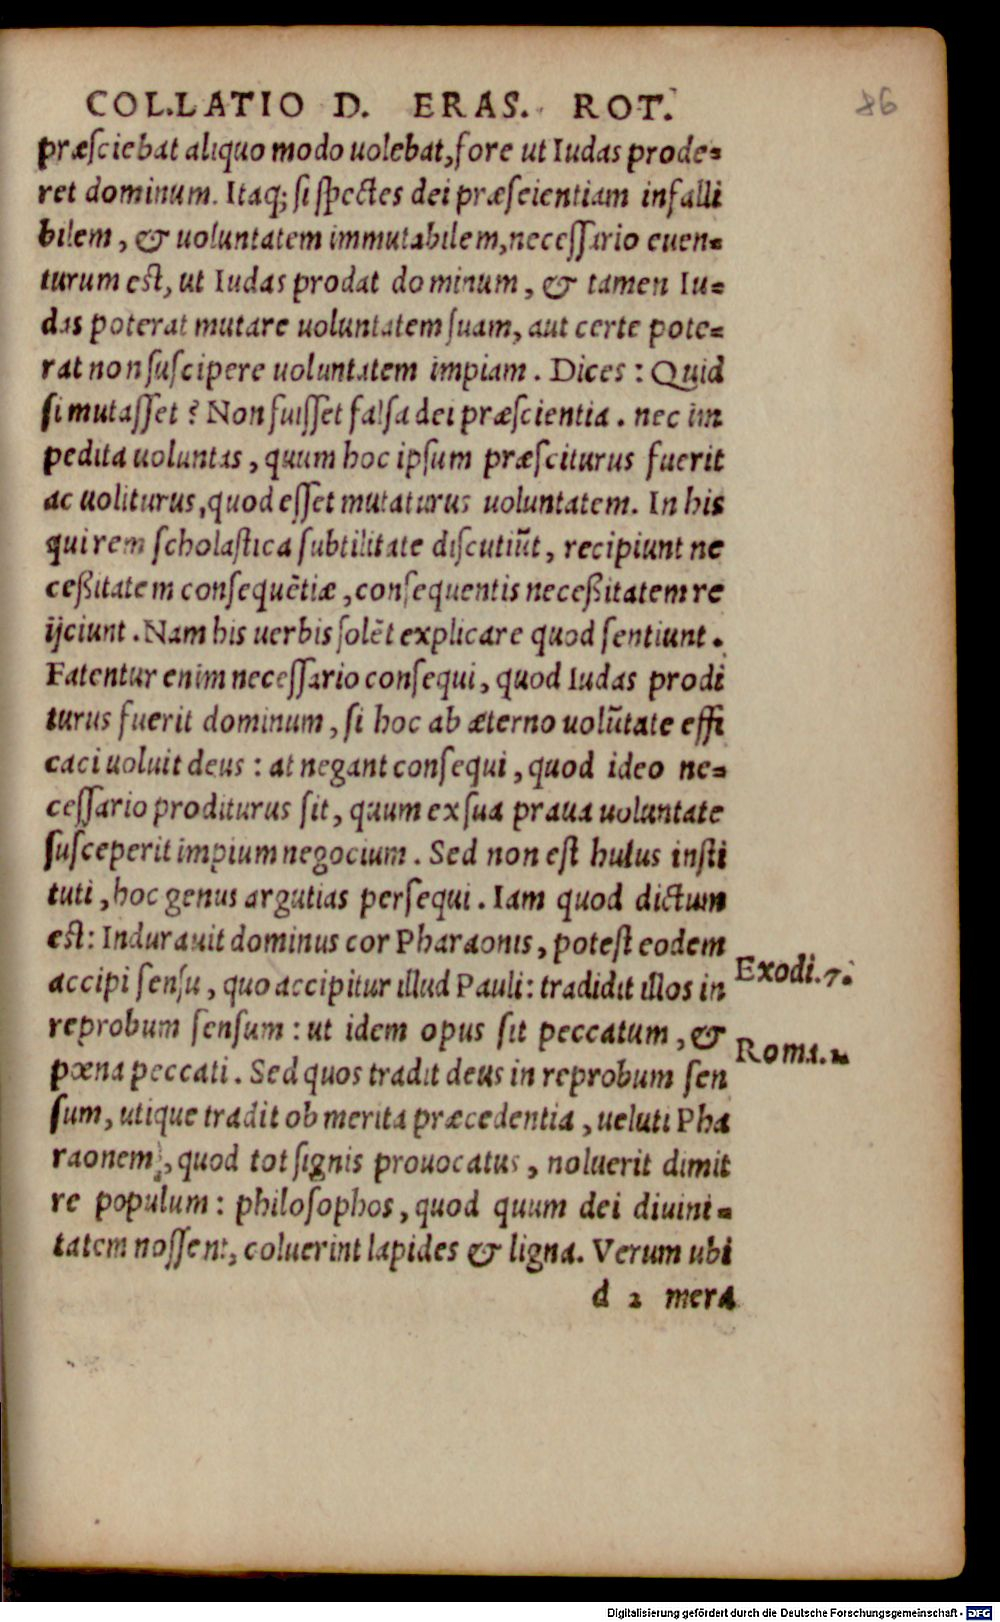 COLLATIO D. ERAS. ROT.
86
præſciebat aliquo modo uolebat, fore ut Iudas prode⸗
ret dominum. Itaq; ſi ſpectes dei præſcientiam infalli
bilem, & uoluntatem immutabilem, neceſſario euen⸗
turum eſt, ut Iudas prodat dominum, & tamen Iu⸗
das poterat mutare uoluntatem ſuam, aut certe pote⸗
rat non ſuſcipere uoluntatem impiam. Dices: Quid
ſi mutaſſet? Non fuiſſet falſa dei præſcientia. nec im
pedita uoluntas, quum hoc ipſum præſciturus fuerit
ac uoliturus, quod eſſet mutaturus uoluntatem. In his
qui rem ſcholaſtica ſubtilitate diſcutiũt, recipiunt ne
ceßitatem conſequẽtiæ, conſequentis neceßitatem re
ijciunt. Nam his uerbis ſolẽt explicare quod ſentiunt.
Fatentur enim neceſſario conſequi, quod Iudas prodi
turus fuerit dominum, ſi hoc ab æterno uolũtate effi
caci uoluit deus: at negant conſequi, quod ideo ne⸗
ceſſario proditurus ſit, quum ex ſua praua uoluntate
ſuſceperit impium negocium. Sed non eſt huius inſti
tuti, hoc genus argutias perſequi. Iam quod dictum
eſt: Indurauit dominus cor Pharaonis, poteſt eodem
accipi ſenſu, quo accipitur illud Pauli: tradidit illos in
Exodi.7.
reprobum ſenſum: ut idem opus ſit peccatum, &
Roma.1.
pœna peccati. Sed quos tradit deus in reprobum ſen
ſum, utique tradit ob merita præcedentia, ueluti Pha
raonem, quod tot ſignis prouocatus, noluerit dimit
re populum: philoſophos, quod quum dei diuini⸗
tatem noſſent, coluerint lapides & ligna. Verum ubi
d 2 mera
Digitalisierung gefördert durch die Deutsche Forschungsgemeinschaft - DFG